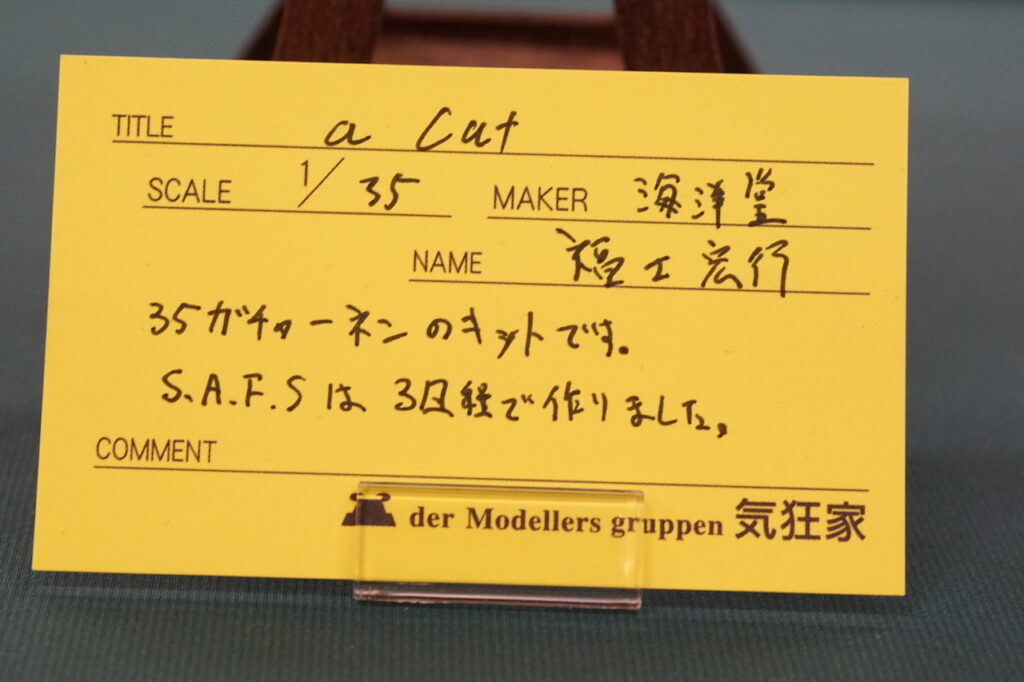 TITLE a Cat
SCALE 1/35 MAKER 海洋堂
NAME 福士宏行
35ガチャーネンのキットです。
S.A.F.Sは3日経で作りました。
COMMENT
der Modellers gruppen 気狂家